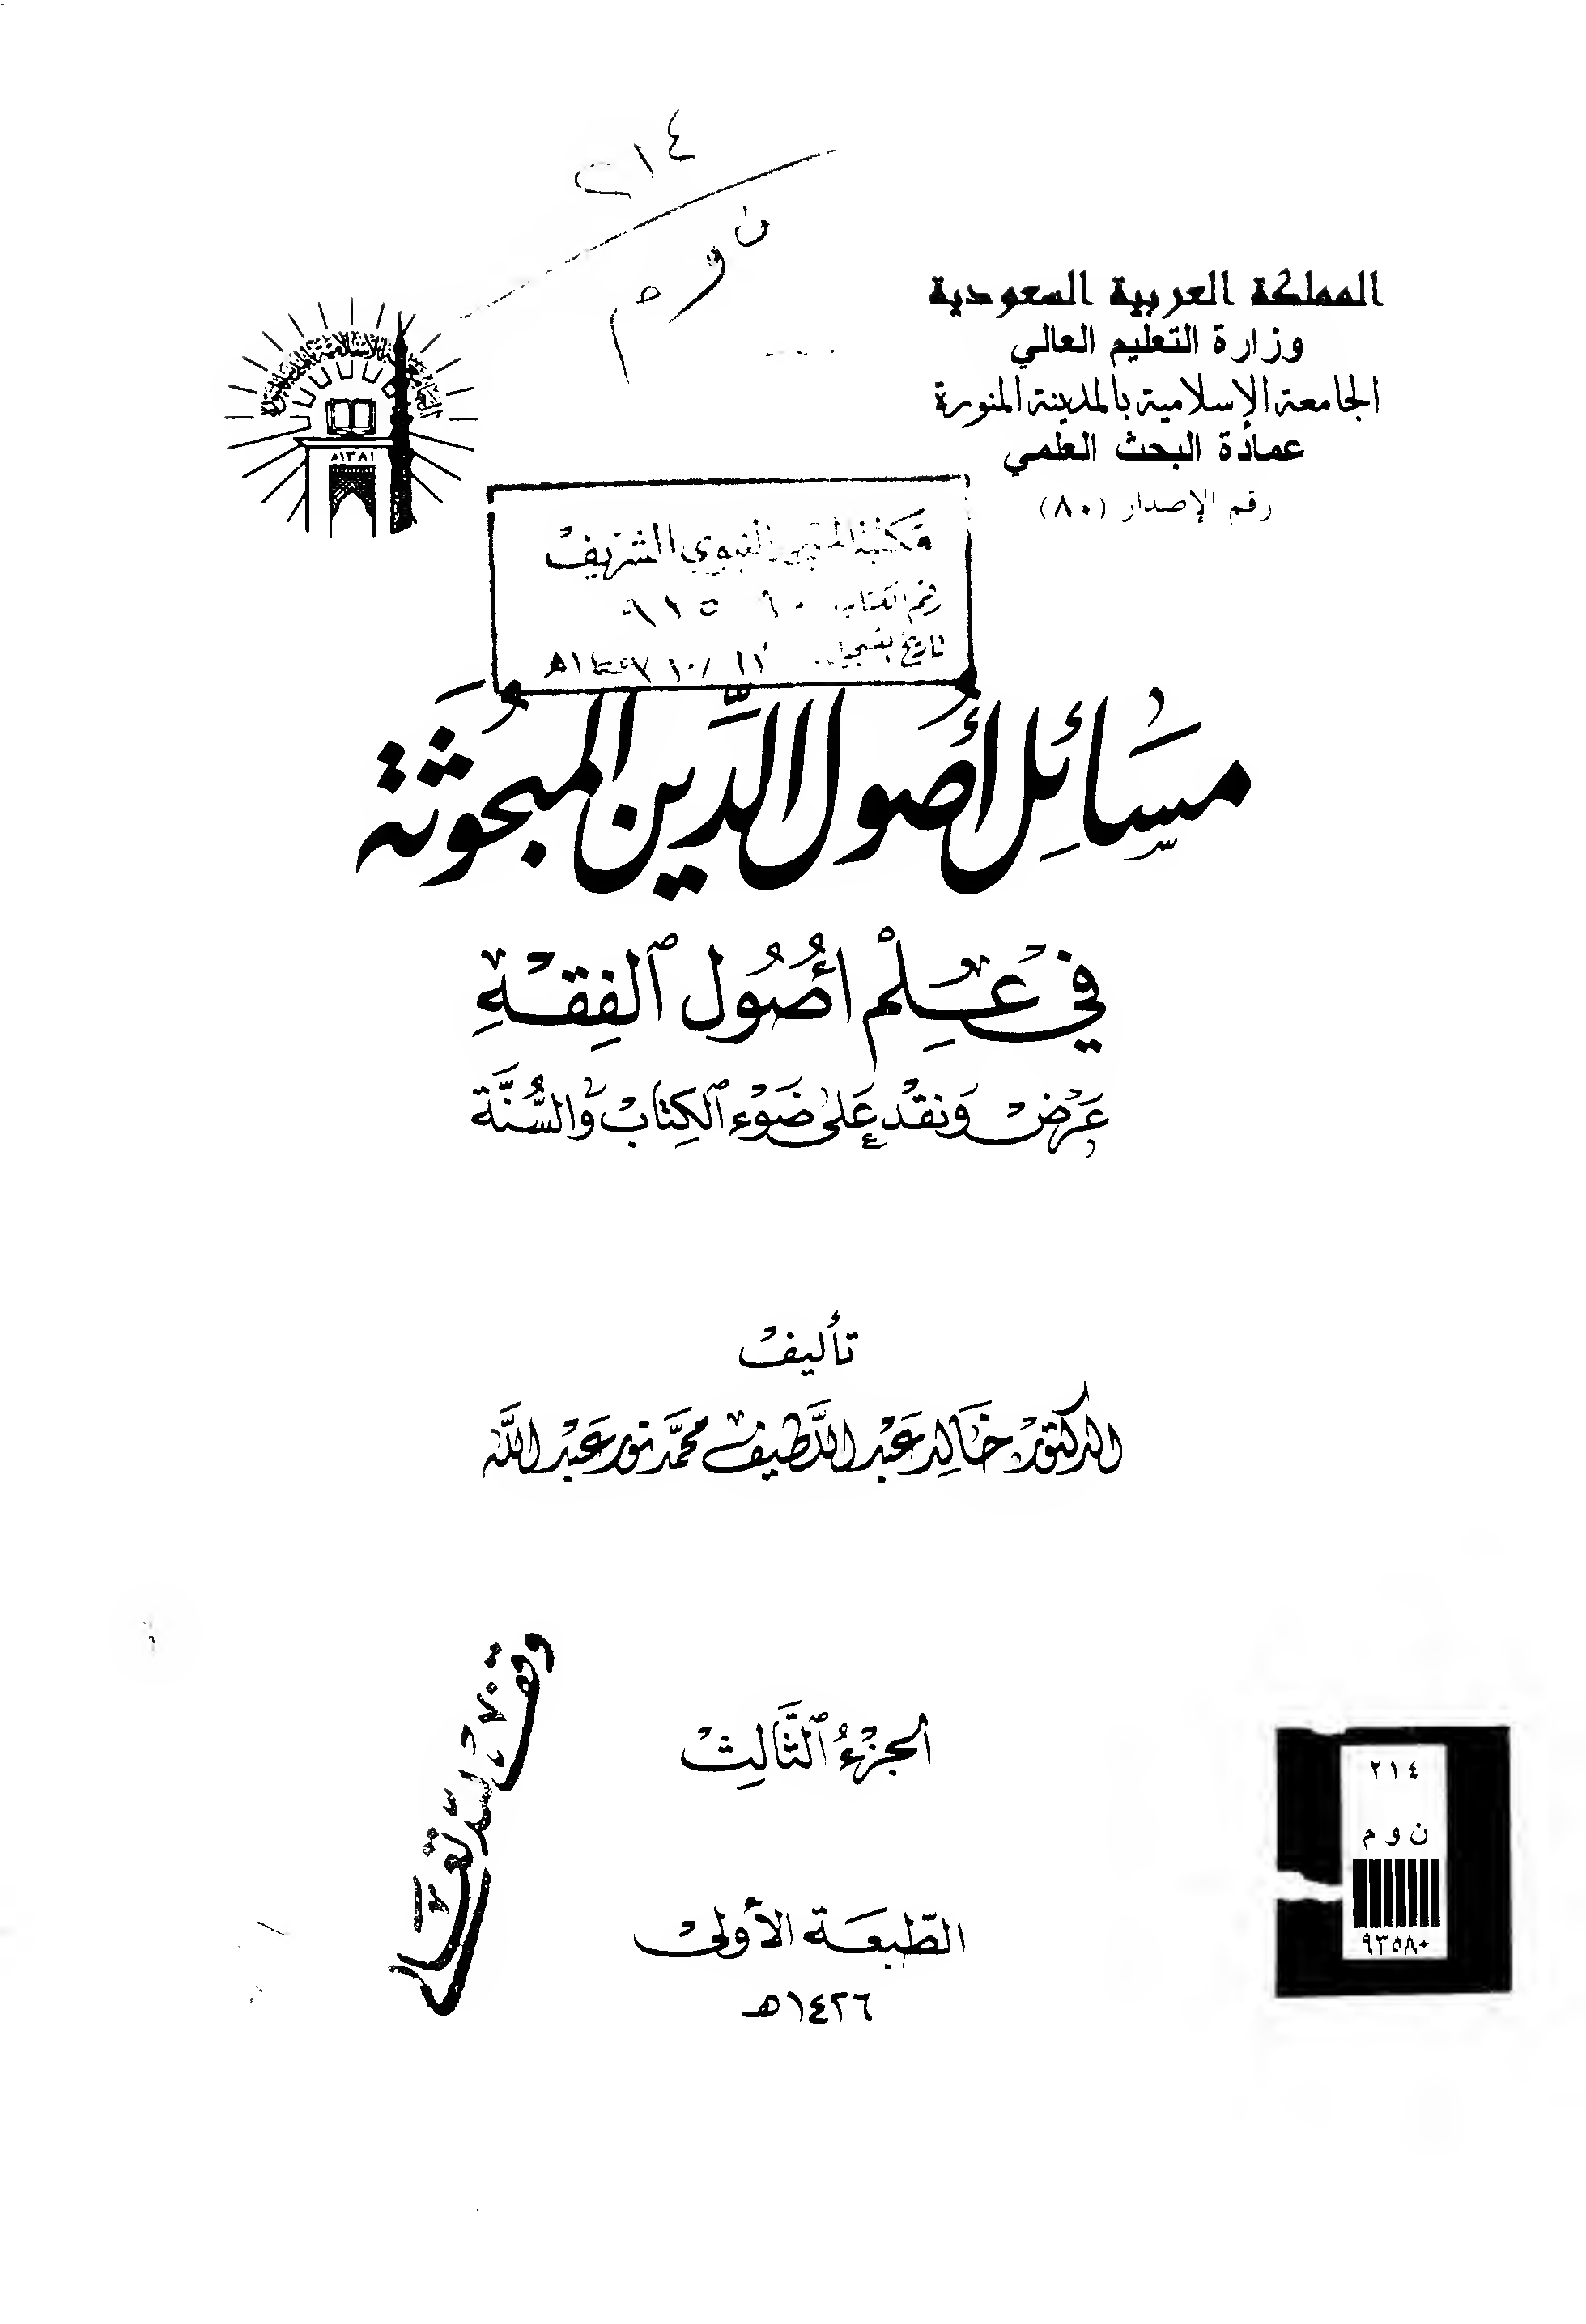 ٢١٤
ن و م
المملكة العربية السعودية
وزارة التعليم العالي
الجامعة الإسلامية بالمدينة المنورة
عمادة البحث العلمي
رقم الإصدار (٨٠)
١٣٨١هـ
مكتبة النبوي الشريف
رقم الكتاب
تاريخ
مَسَائِل أُصُول الدِّين المَبْحُوثَة
في عِلْم أُصُول ٱلفِقْهِ
عَرْضٌ وَنَقْدٌ عَلى ضَوْءِ ٱلكِتَابِ وَالسُّنَّة
تأليف
الدكتور خَالِد عَبْد اللَّطيف محمَّد نور عَبْد اللَّه
الجزءُ ٱلثَّالِث
وقف لله تعالى
الطّبعَة الأولى
١٤٢٦هـ
٢١٤
ن و م
٩٣٥٨٠